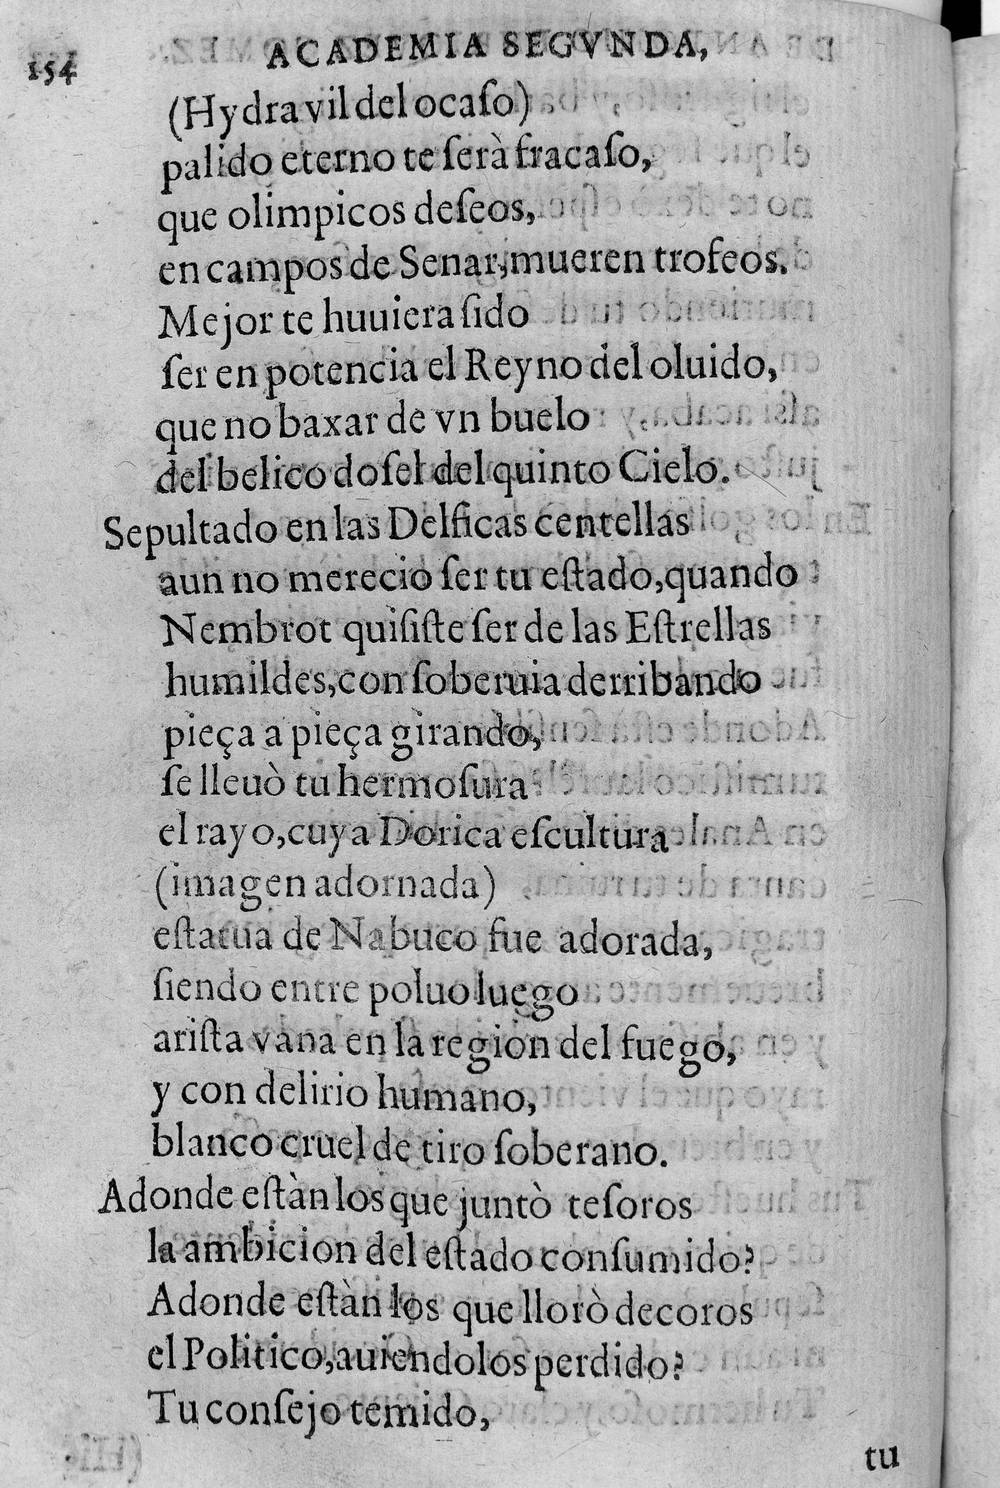 154 ACADEMIA SEGVNDA,
(Hydra vil del ocaſo)
palido eterno te ſerà fracaſo,
que olimpicos deſeos,
en campos de Senar, mueren trofeos.
Mejor te huuiera ſido
ſer en potencia el Reyno del oluido,
que no baxar de vn buelo
del belico doſel del quinto Cielo.
Sepultado en las Delficas centellas
aun no merecio ſer tu eſtado, quando
Nembrot quiſiſte ſer de las Eſtrellas
humildes, con ſoberuia derribando
pieça a pieça girando,
ſe lleuò tu hermoſura
el rayo, cuya Dorica eſcultura
(imagen adornada)
eſtatua de Nabuco fue adorada,
ſiendo entre poluo luego
ariſta vana en la region del fuego,
y con delirio humano,
blanco cruel de tiro ſoberano.
Adonde eſtàn los que juntò teſoros
la ambicion del eſtado conſumido?
Adonde eſtàn los que llorò decoros
el Politico, auiendolos perdido?
Tu conſejo temido,
tu